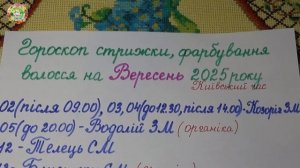 Гороскоп стрижки, фарбування
волосся на Вересень 2025 року
Київський час
02(після 09.00), 03, 04(до 12.30, після 14.00)-Козоріг ЗМ
05(до 20.00)-Водолій ЗМ (органіка)
12 - Телець СМ